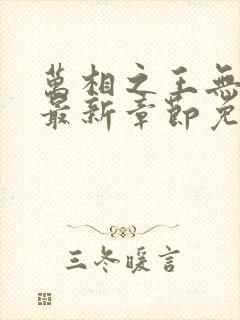 萬相之王無
最新章節免
三冬暖言